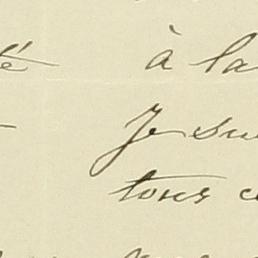 té à la
Je sui
tous c